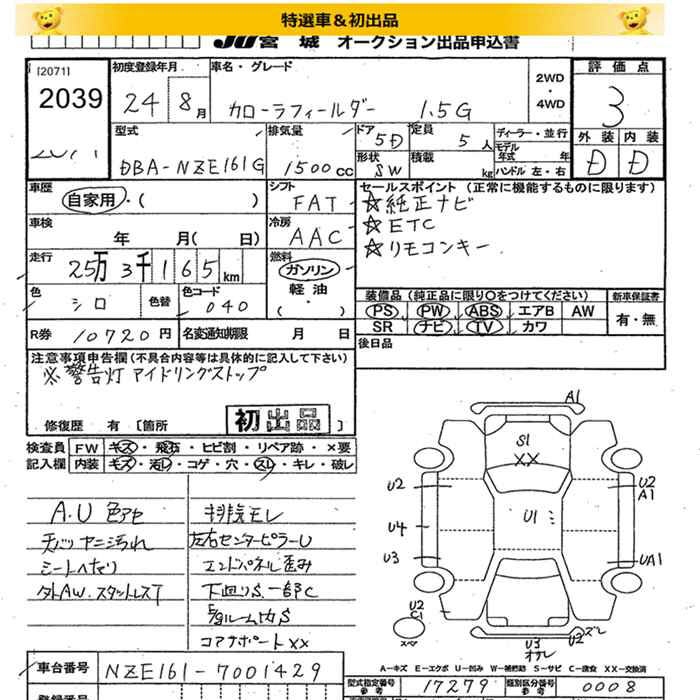 特選車＆初出品
JU宮城 オークション出品申込書
[2071]
2039
初度登録年月
24 8月
車名・グレード
カローラフィールダー 1.5G
2WD
・
4WD
評価点
3
外装 内装
D D
型式
DBA-NZE161G
排気量
1500cc
ドア
5D
定員
5人
形状
SW
積載
kg
ディーラー・並行
モデル年式 年
ハンドル 左・右
車歴
自家用・( )
シフト
FAT
冷房
AAC
車検
年 月(日)
走行
25万3千165km
燃料
ガソリン
軽油
・
( )
色
シロ
色替
色コード
040
R券
10720円
名変通知期限 月 日
セールスポイント (正常に機能するものに限ります)
☆純正ナビ
☆ETC
☆リモコンキー
装備品 (純正品に限り○をつけてください) 新車保証書
PS PW ABS エアB AW
SR ナビ TV カワ
有・無
後日品
注意事項申告欄 (不具合内容等は具体的に記入して下さい)
※警告灯 アイドリングストップ
修復歴 有 [箇所 ]
初出品
検査員記入欄
FW キズ・飛石・ヒビ割・リペア跡・×要
内装 キズ・汚レ・コゲ・穴・スレ・キレ・破レ
A.U 色アセ
天バリ ヤニ汚れ
シートヘタリ
外AW. スタットレスT
排気モレ
左右センターピラーU
エンドパネル歪み
下廻りS. 一部C
Egルーム内S
コアサポートXX
A1
S1
XX
U2
U4
U3
U1
U2
A1
UA1
U2
C1
スペア
U3
オサレ
U2 ズレ
A=キズ E=エクボ U=凹み W=補修跡 S=サビ C=腐食 XX=交換済
車台番号
NZE161-7001429
型式指定番号
参考
17279
類別区分番号
参考
0008